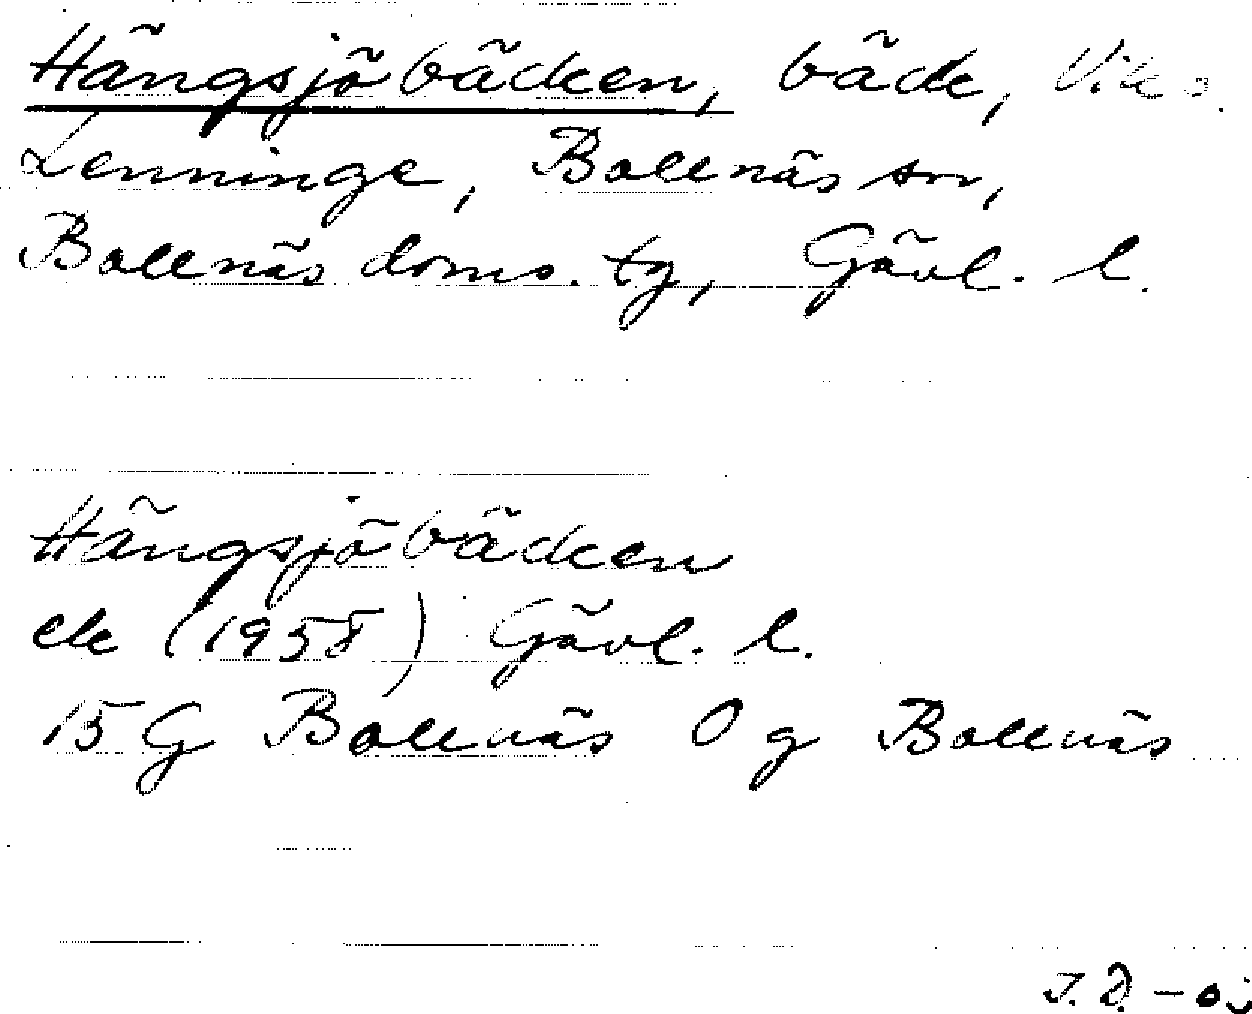 Hängsjöbäcken, bäck,
Lenninge, Bollnäs sn,
Bollnäs doms. tg, Gävl. l.
Hängsjöbäcken
ek (1958) Gävl. l.
15 G Bollnäs 0 g Bollnäs